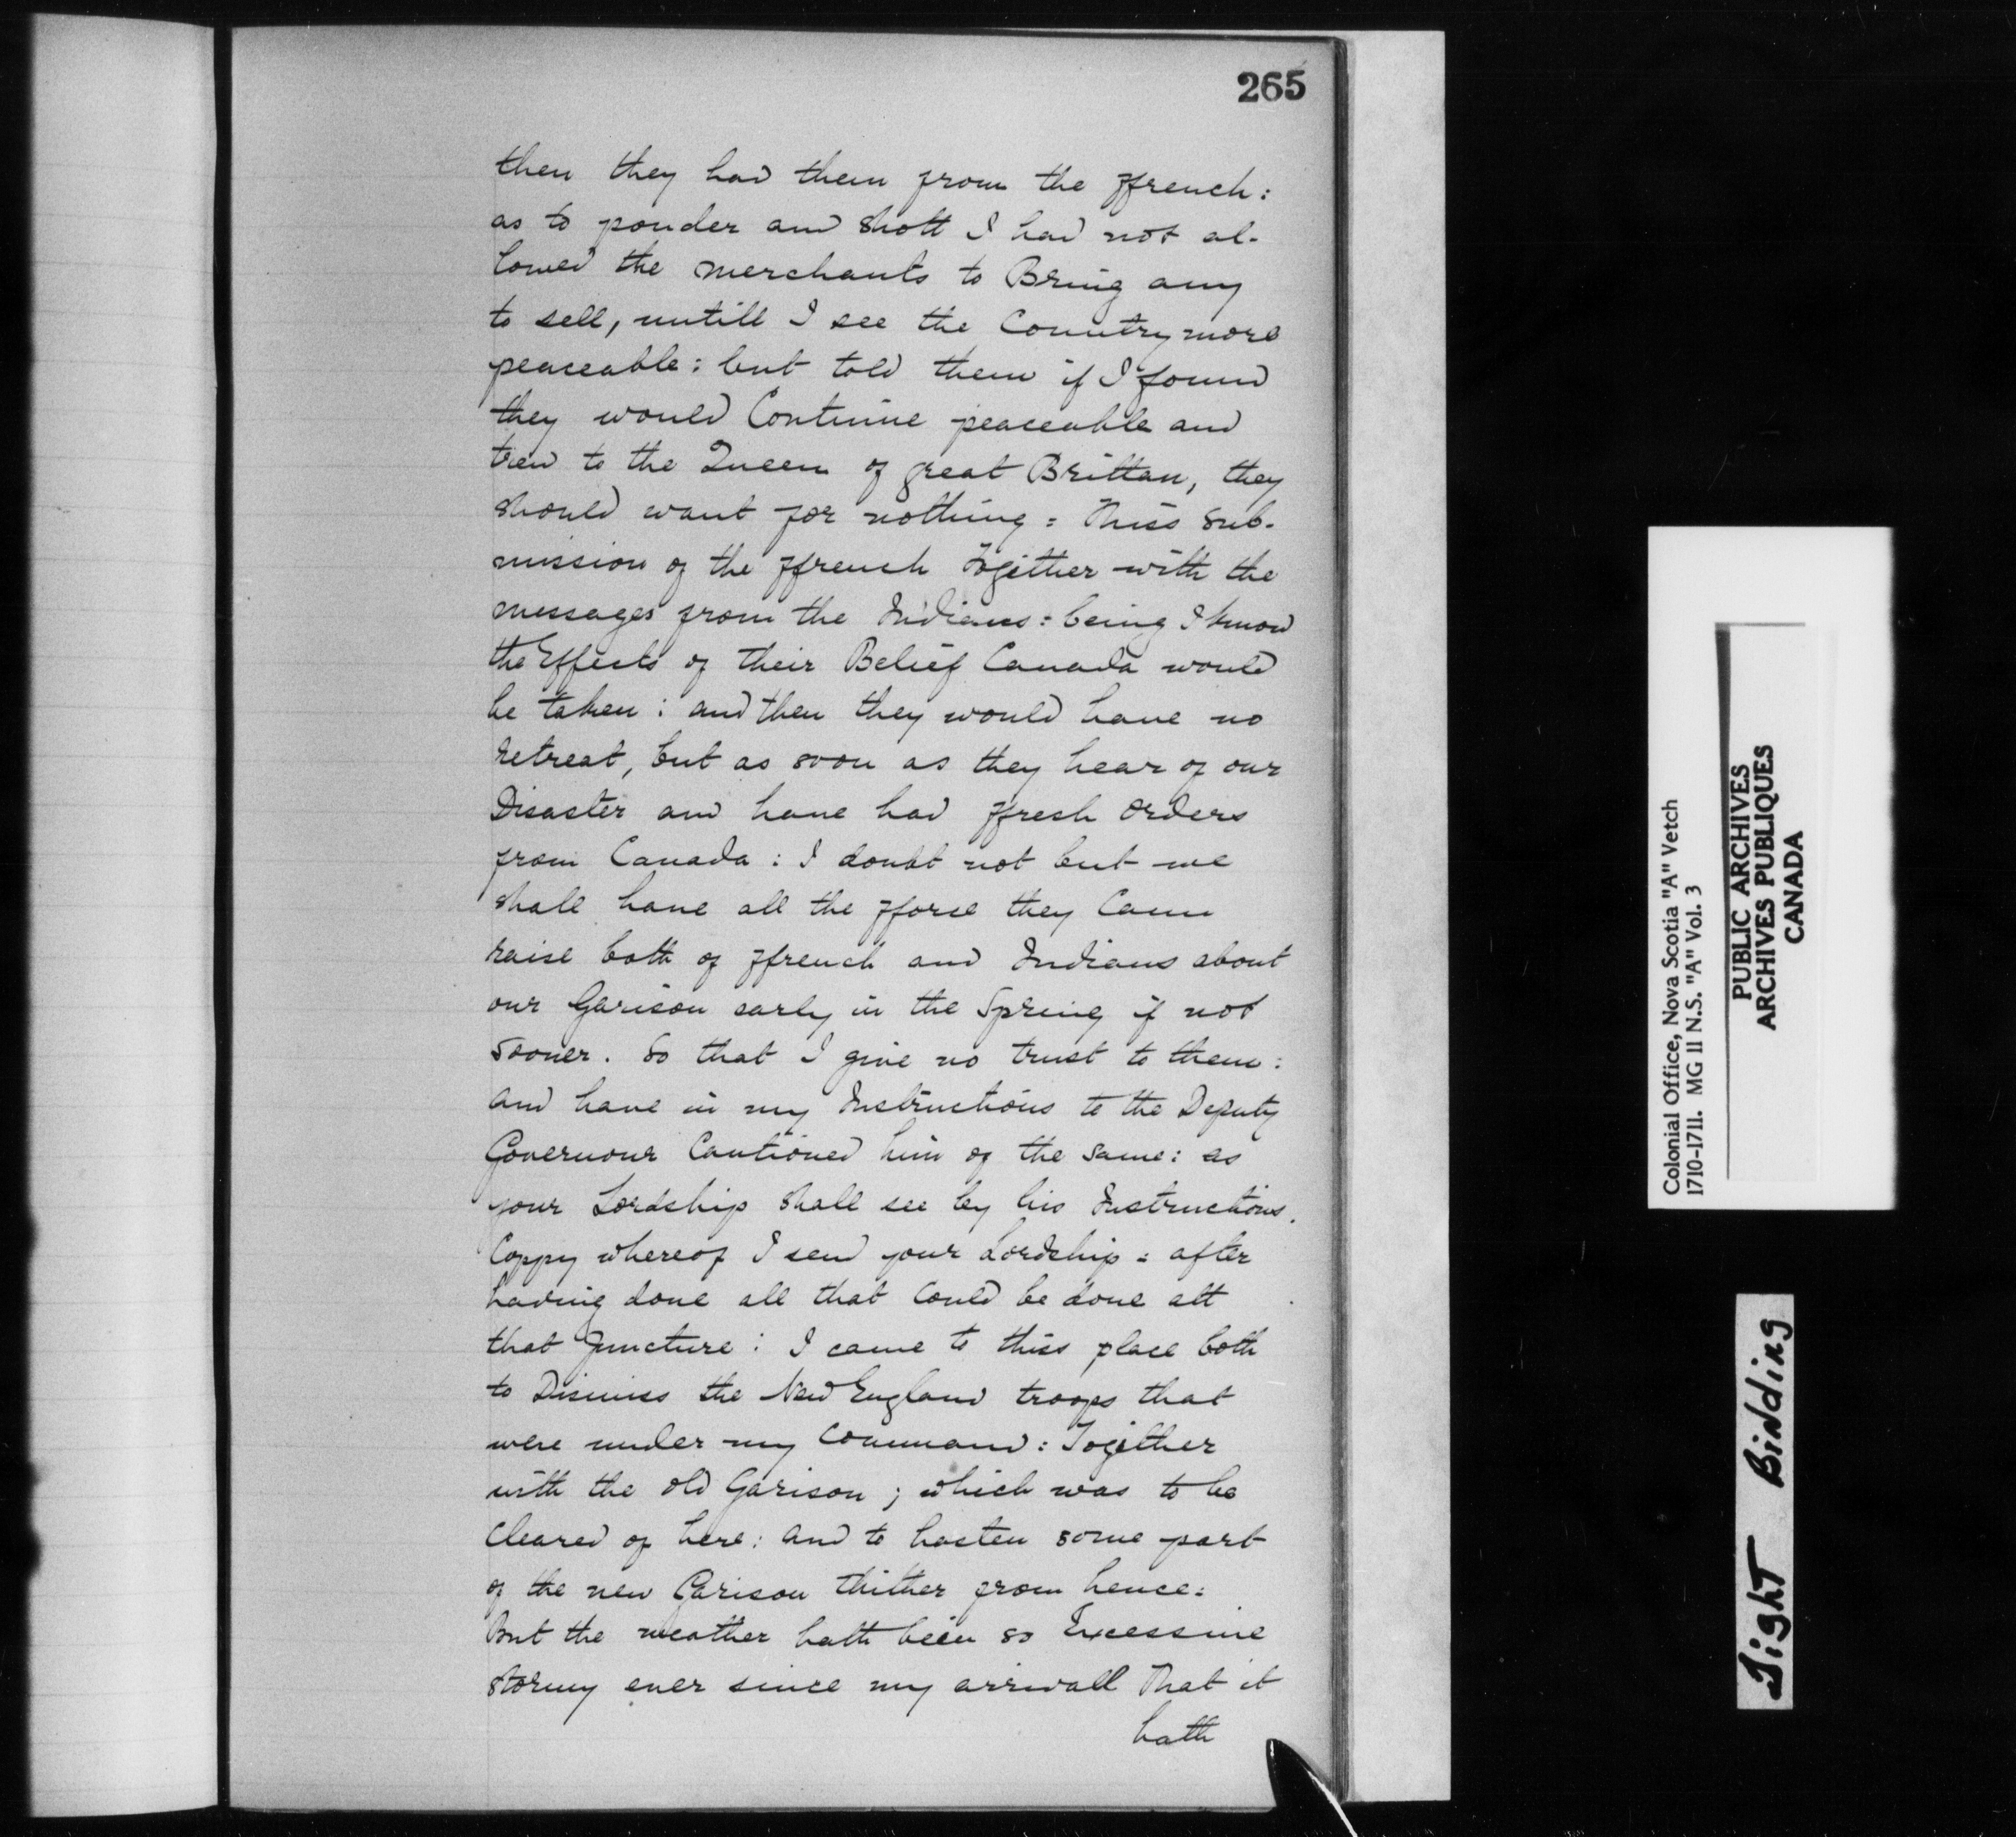 265
then they had them from the ffrench:
as to pouder and Shott I had not al-
lowed the merchants to Bring any
to sell, untill I see the Country more
peaceable: but told them if I found
they would Continue peaceable and
trew to the Queen of great Brittan, they
should want for nothing: This Sub-
mission of the ffrench Together with the
messages from the Indians: being I know
the Effects of their Belief Canada would
be taken: and then they would have no
retreat, but as soon as they hear of our
Disaster and have had ffresh orders
from Canada: I doubt not but we
shall have all the fforce they Cann
raise both of ffrench and Indians about
our Garison early in the Spring if not
Sooner. So that I give no trust to them:
and have in my Instructions to the Deputy
Governour Cautioned him of the Same: as
your Lordship shall see by his Instructions.
Coppy whereof I send your Lordship: after
having done all that Could be done att
that Juncture: I came to this place both
to Dismiss the New England troops that
were under my Command: Together
with the old Garison; which was to be
Cleared of here: and to hasten some part
of the new Garison thither from hence:
But the weather hath been so Excessive
stormy ever since my arrivall That it
hath
Colonial Office, Nova Scotia "A" Vetch
1710-1711. MG 11 N.S. "A" Vol. 3
PUBLIC ARCHIVES
ARCHIVES PUBLIQUES
CANADA
Tight Bidding